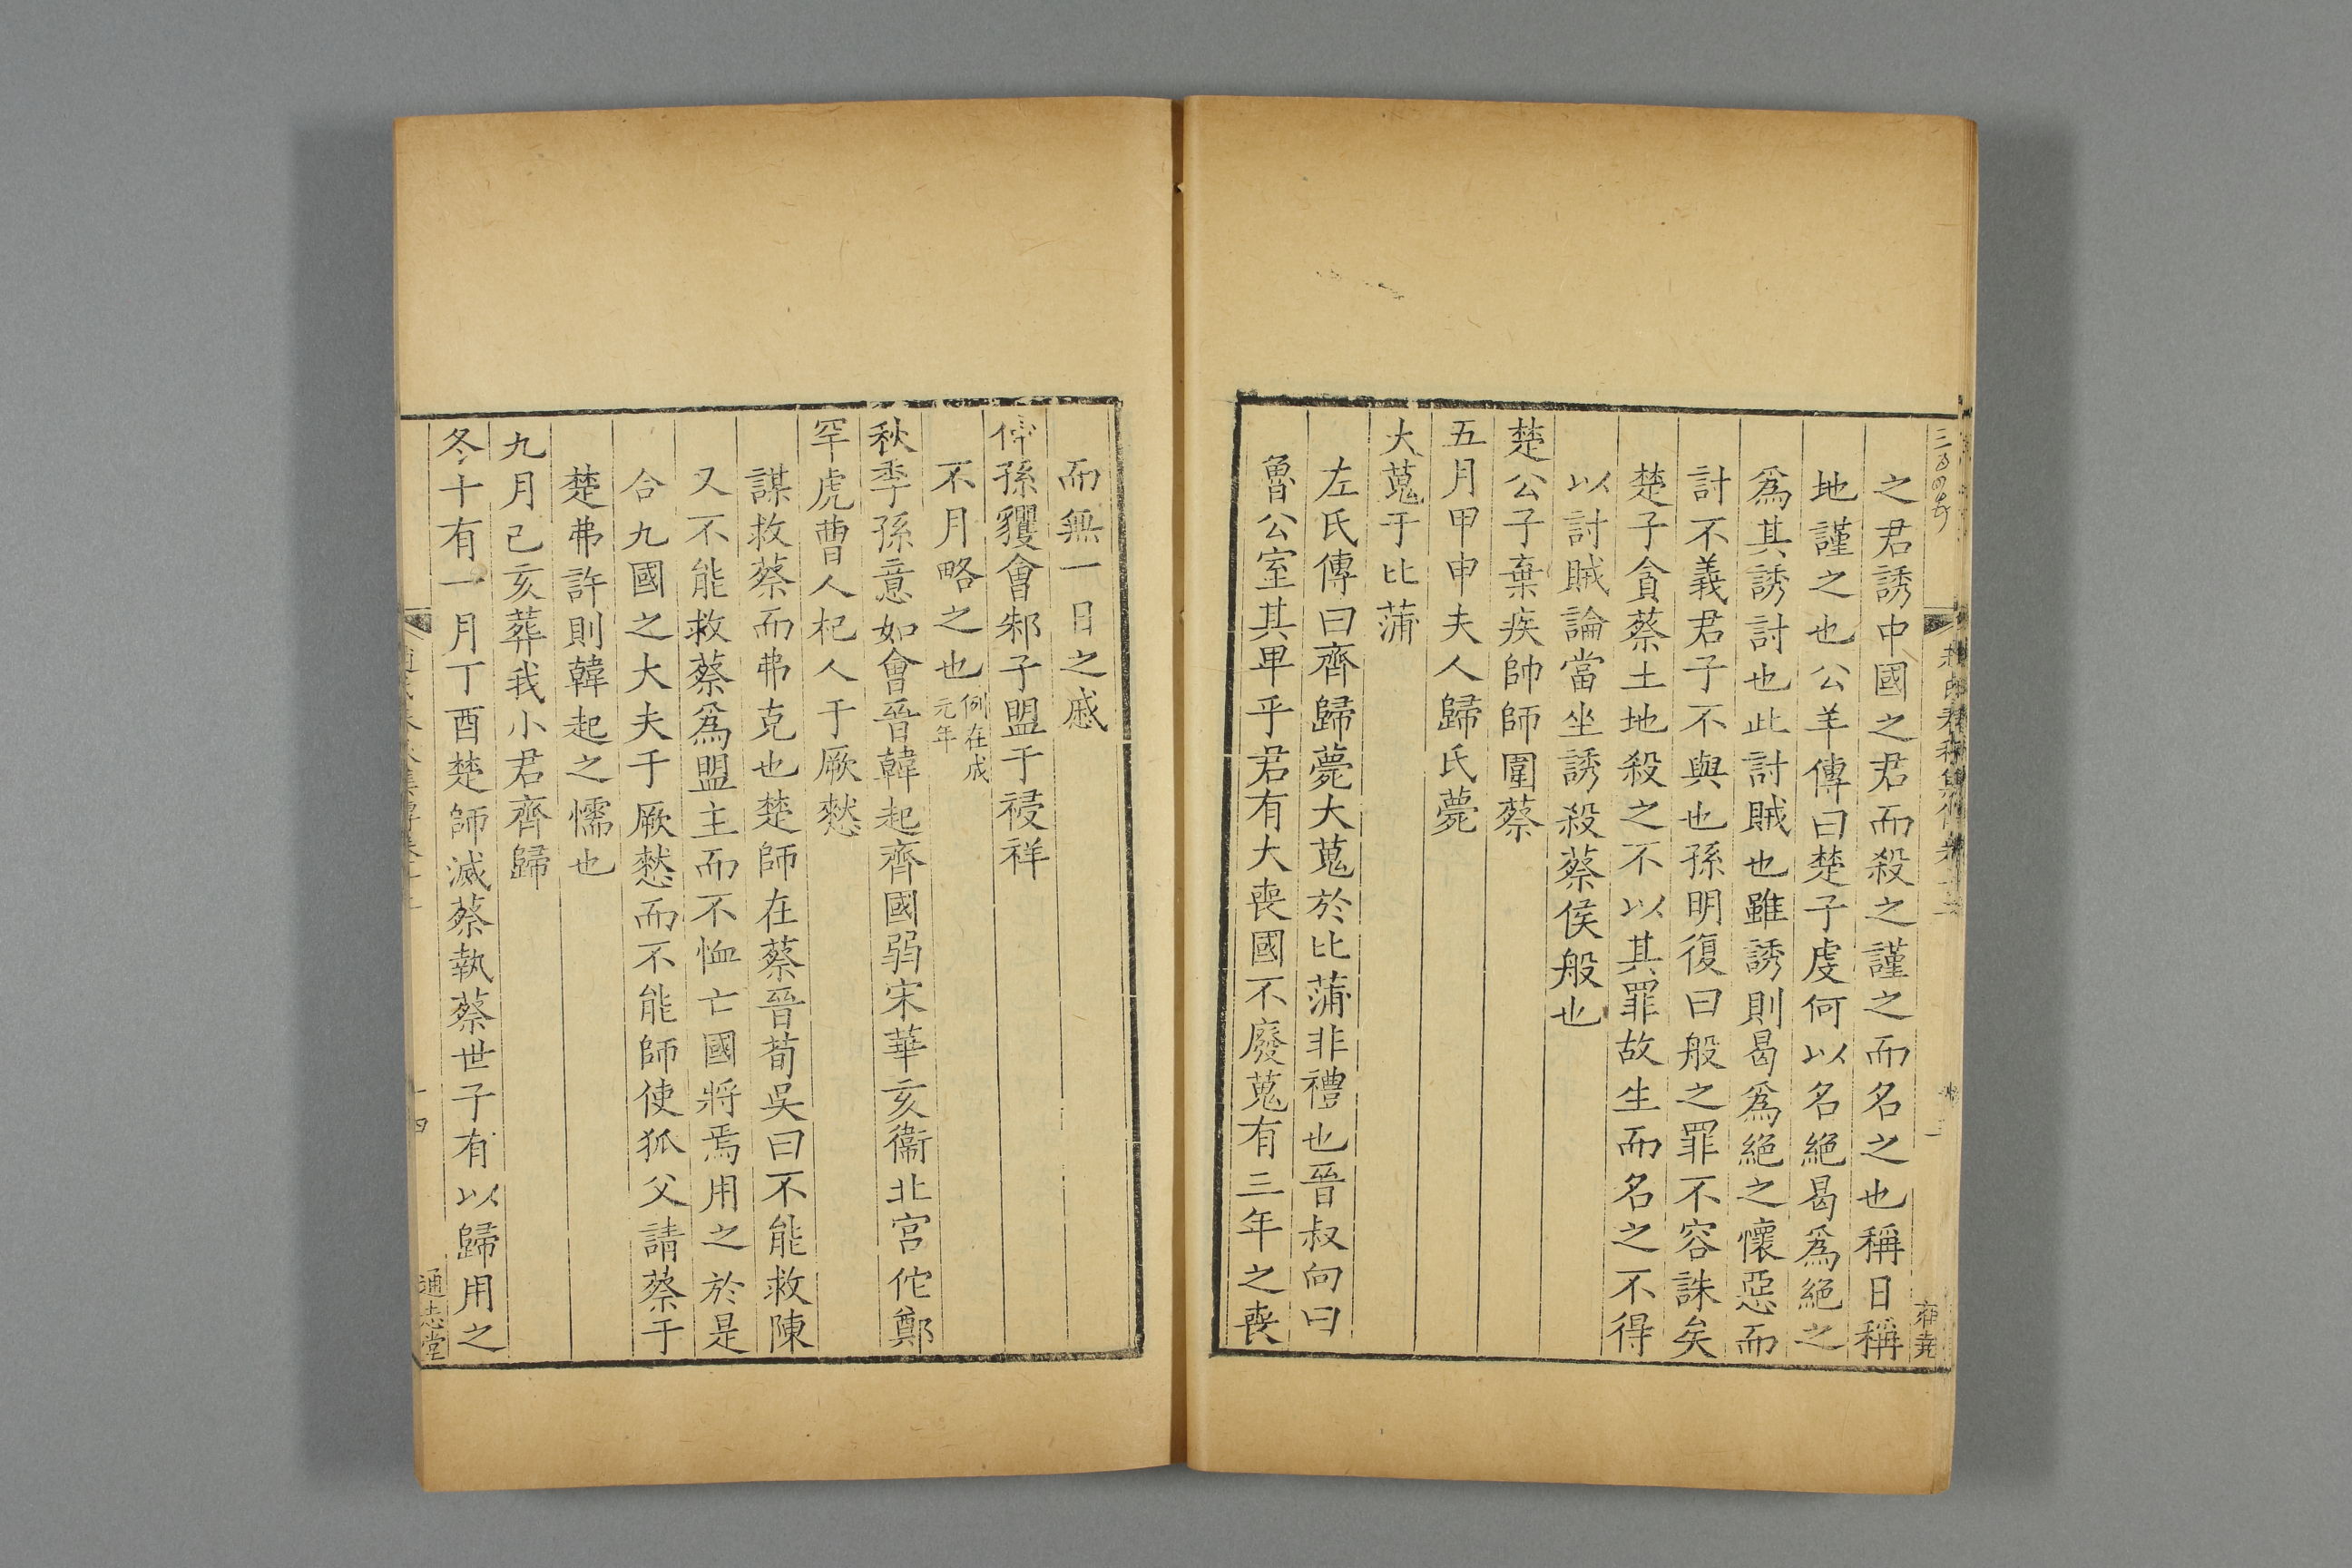 之君誘中國之君而殺之謹之而名之也稱日稱
地謹之也公羊傳曰楚子虔何以名絕曷爲絕之
爲其誘討也此討賊也雖誘則曷爲絕之懷惡而
討不義君子不與也孫明復曰般之罪不容誅矣
楚子貪蔡土地殺之不以其罪故生而名之不得
以討賊論當坐誘殺蔡侯般也
楚公子棄疾帥師圍蔡
五月甲申夫人歸氏薨
大蒐于比蒲
左氏傳曰齊歸薨大蒐於比蒲非禮也晉叔向曰
魯公室其卑乎君有大喪國不廢蒐有三年之喪
而無一日之慼
仲孫貜會邾子盟于祲祥
不月略之也例在成元年
秋季孫意如會晉韓起齊國弱宋華亥衞北宮佗鄭
罕虎曹人杞人于厥憖
謀救蔡而弗克也楚師在蔡晉荀吳曰不能救陳
又不能救蔡爲盟主而不恤亡國將焉用之於是
合九國之大夫于厥憖而不能師使狐父請蔡于
楚弗許則韓起之懦也
九月己亥葬我小君齊歸
冬十有一月丁酉楚師滅蔡執蔡世子有以歸用之
十四
通志堂